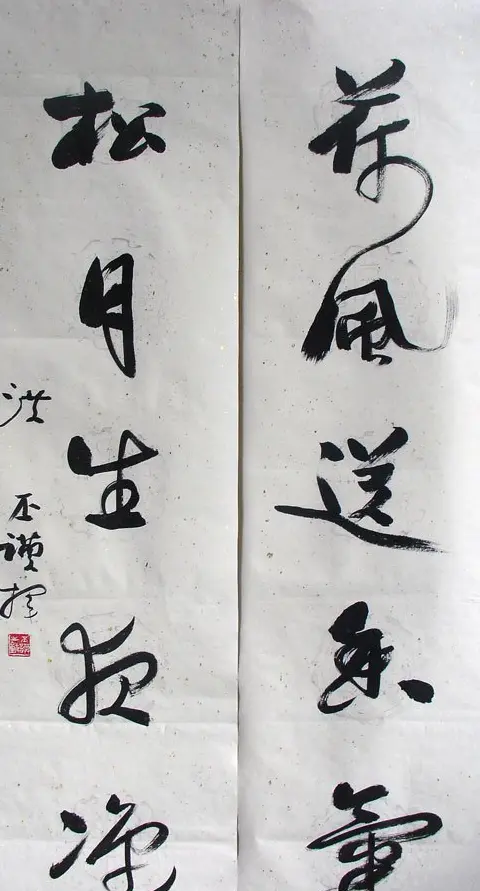 荷風送香氣
松月生夜凉
洪丕謨揮